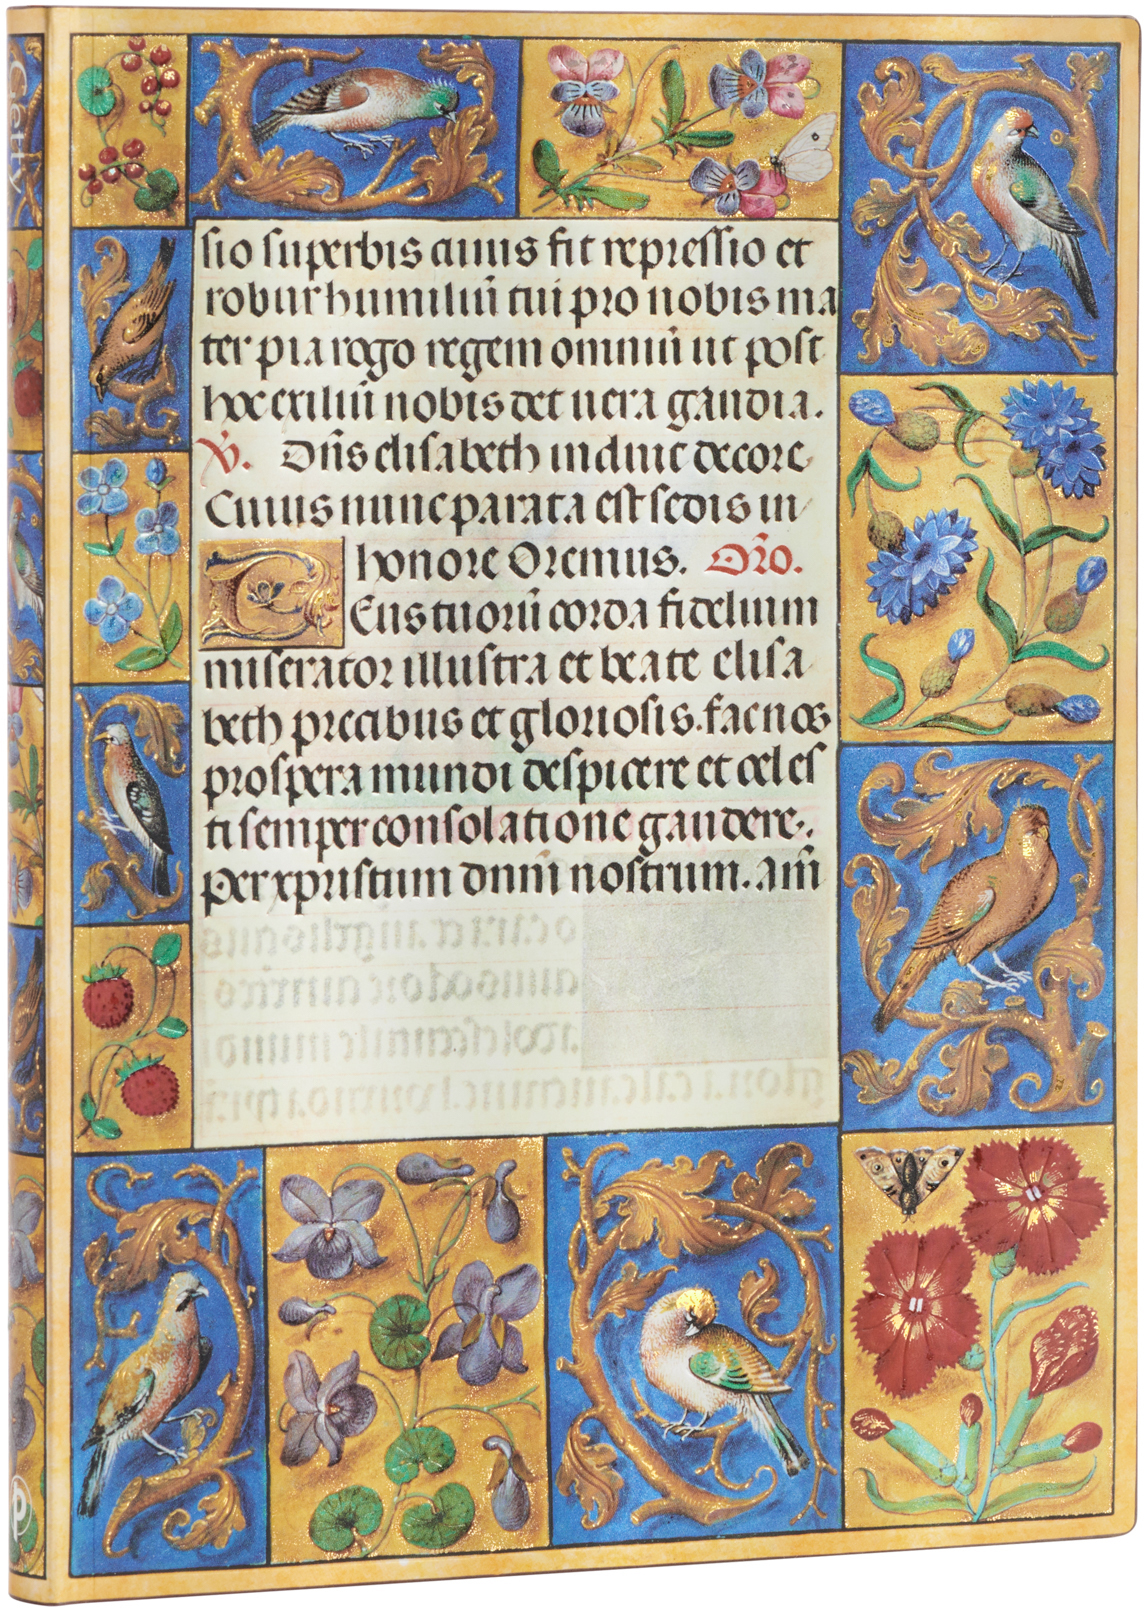 sio superbis cuius fit repressio et
robur humiliū tui pro nobis ma
ter pia rogo regem omniū ut post
hoc exiliū nobis det uera gaudia.
V. Dn̄s elisabeth induit decore
Cuius nunc parata est sedis in
honore Oremus. Or̄o.
Deus tuorū corda fidelium
miserator illustra et beate elisa
beth precibus et gloriosis. fac nos
prospera mundi despicere et celes
ti semper consolatione gaudere.
Per xpristum dnm̄ nostrum. am̄
Getty